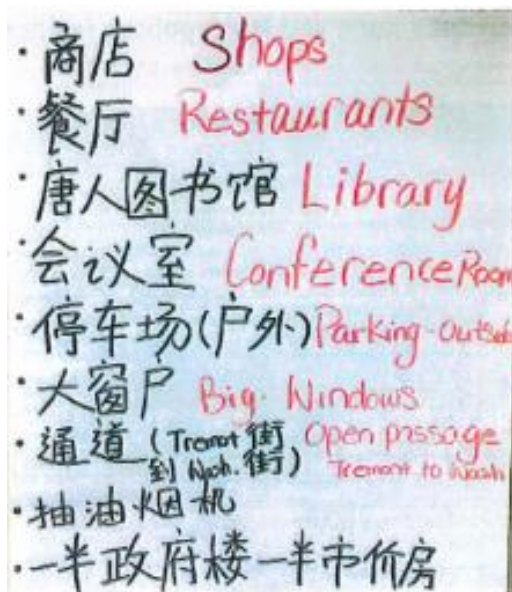 · 商店 Shops
· 餐厅 Restaurants
· 唐人图书馆 Library
· 会议室 Conference Room
· 停车场(户外) Parking-Outside
· 大窗户 Big Windows
· 通道 (Tremont 街 Open passage
到 Wash. 街) Tremont to Wash
· 抽油烟机
· 一半政府楼一半市价房